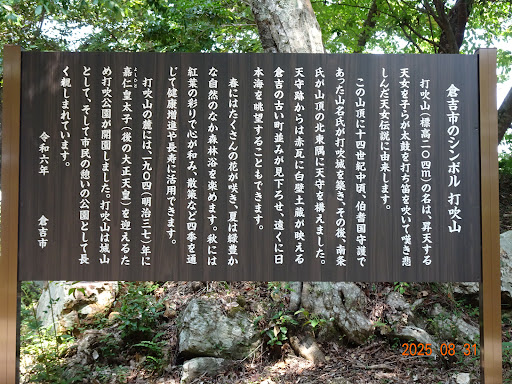 倉吉市のシンボル 打吹山
打吹山(標高二〇四m)の名は、昇天する
天女を子らが太鼓を打ち笛を吹いて嘆き悲
しんだ天女伝説に由来します。
この山頂に十四世紀中頃、伯耆国守護で
あった山名氏が打吹城を築き、その後、南条
氏が山頂の北東隅に天守を構えました。
天守跡からは赤瓦に白壁土蔵が映える
倉吉の古い町並みが見下ろせ、遠くに日
本海を眺望することもできます。
春にはたくさんの花が咲き、夏は緑豊か
な自然のなか森林浴を楽めます。秋には
紅葉の彩りで心が和み、散策など四季を通
じて健康増進や長寿に活用できます。
打吹山の麓には、一九〇四(明治三七)年に
嘉仁皇太子(後の大正天皇)を迎えるた
め打吹公園が開園しました。打吹山は城山
として、そして市民の憩いの公園として長
く親しまれています。
令和六年 倉吉市
2025 08 31